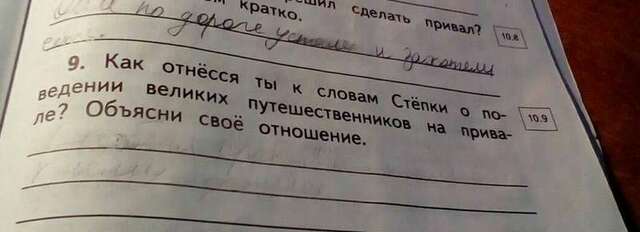 решил сделать привал?
м кратко.
по дороге устали и захотели
10.8
9. Как отнёсся ты к словам Стёпки о по-
ведении великих путешественников на прива-
ле? Объясни своё отношение.
10.9